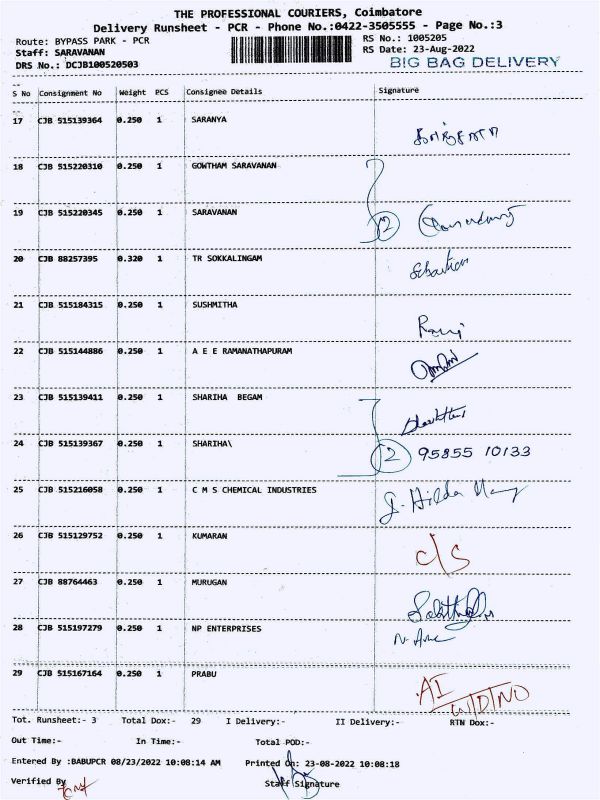 THE PROFESSIONAL COURIERS, Coimbatore
Delivery Runsheet - PCR - Phone No.:0422-3505555 - Page No.:3
Route: BYPASS PARK - PCR RS No.: 1005205
Staff: SARAVANAN RS Date: 23-Aug-2022
DRS No.: DCJB100520503 BIG BAG DELIVERY
S No Consignment No Weight PCS Consignee Details Signature
17 CJB 515139364 0.250 1 SARANYA
18 CJB 515220310 0.250 1 GOWTHAM SARAVANAN
19 CJB 515220345 0.250 1 SARAVANAN 2
20 CJB 88257395 0.320 1 TR SOKKALINGAM Sebastian
21 CJB 515184315 0.250 1 SUSHMITHA
22 CJB 515144886 0.250 1 A E E RAMANATHAPURAM
23 CJB 515139411 0.250 1 SHARIHA BEGAM
24 CJB 515139367 0.250 1 SHARIHA\ 2 95855 10133
25 CJB 515216058 0.250 1 C M S CHEMICAL INDUSTRIES J. Hilda Mary
26 CJB 515129752 0.250 1 KUMARAN C/S
27 CJB 88764463 0.250 1 MURUGAN
28 CJB 515197279 0.250 1 NP ENTERPRISES
29 CJB 515167164 0.250 1 PRABU AI
Tot. Runsheet:- 3 Total Dox:- 29 I Delivery:- II Delivery:- RTN Dox:-
Out Time:- In Time:- Total POD:-
Entered By :BABUPCR 08/23/2022 10:08:14 AM Printed On: 23-08-2022 10:08:18
Verified By Staff Signature